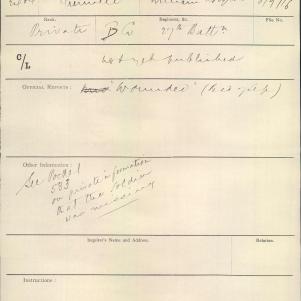 William
Rank. Regiment, &c. File No.
Private 27th Battn
C/L not yet published
OFFICIAL REPORTS : "Wounded"
Other Information :
See Pocket
583
on private information
that the soldier
was missing
Inquirer's Name and Address. Relation.
Instructions :